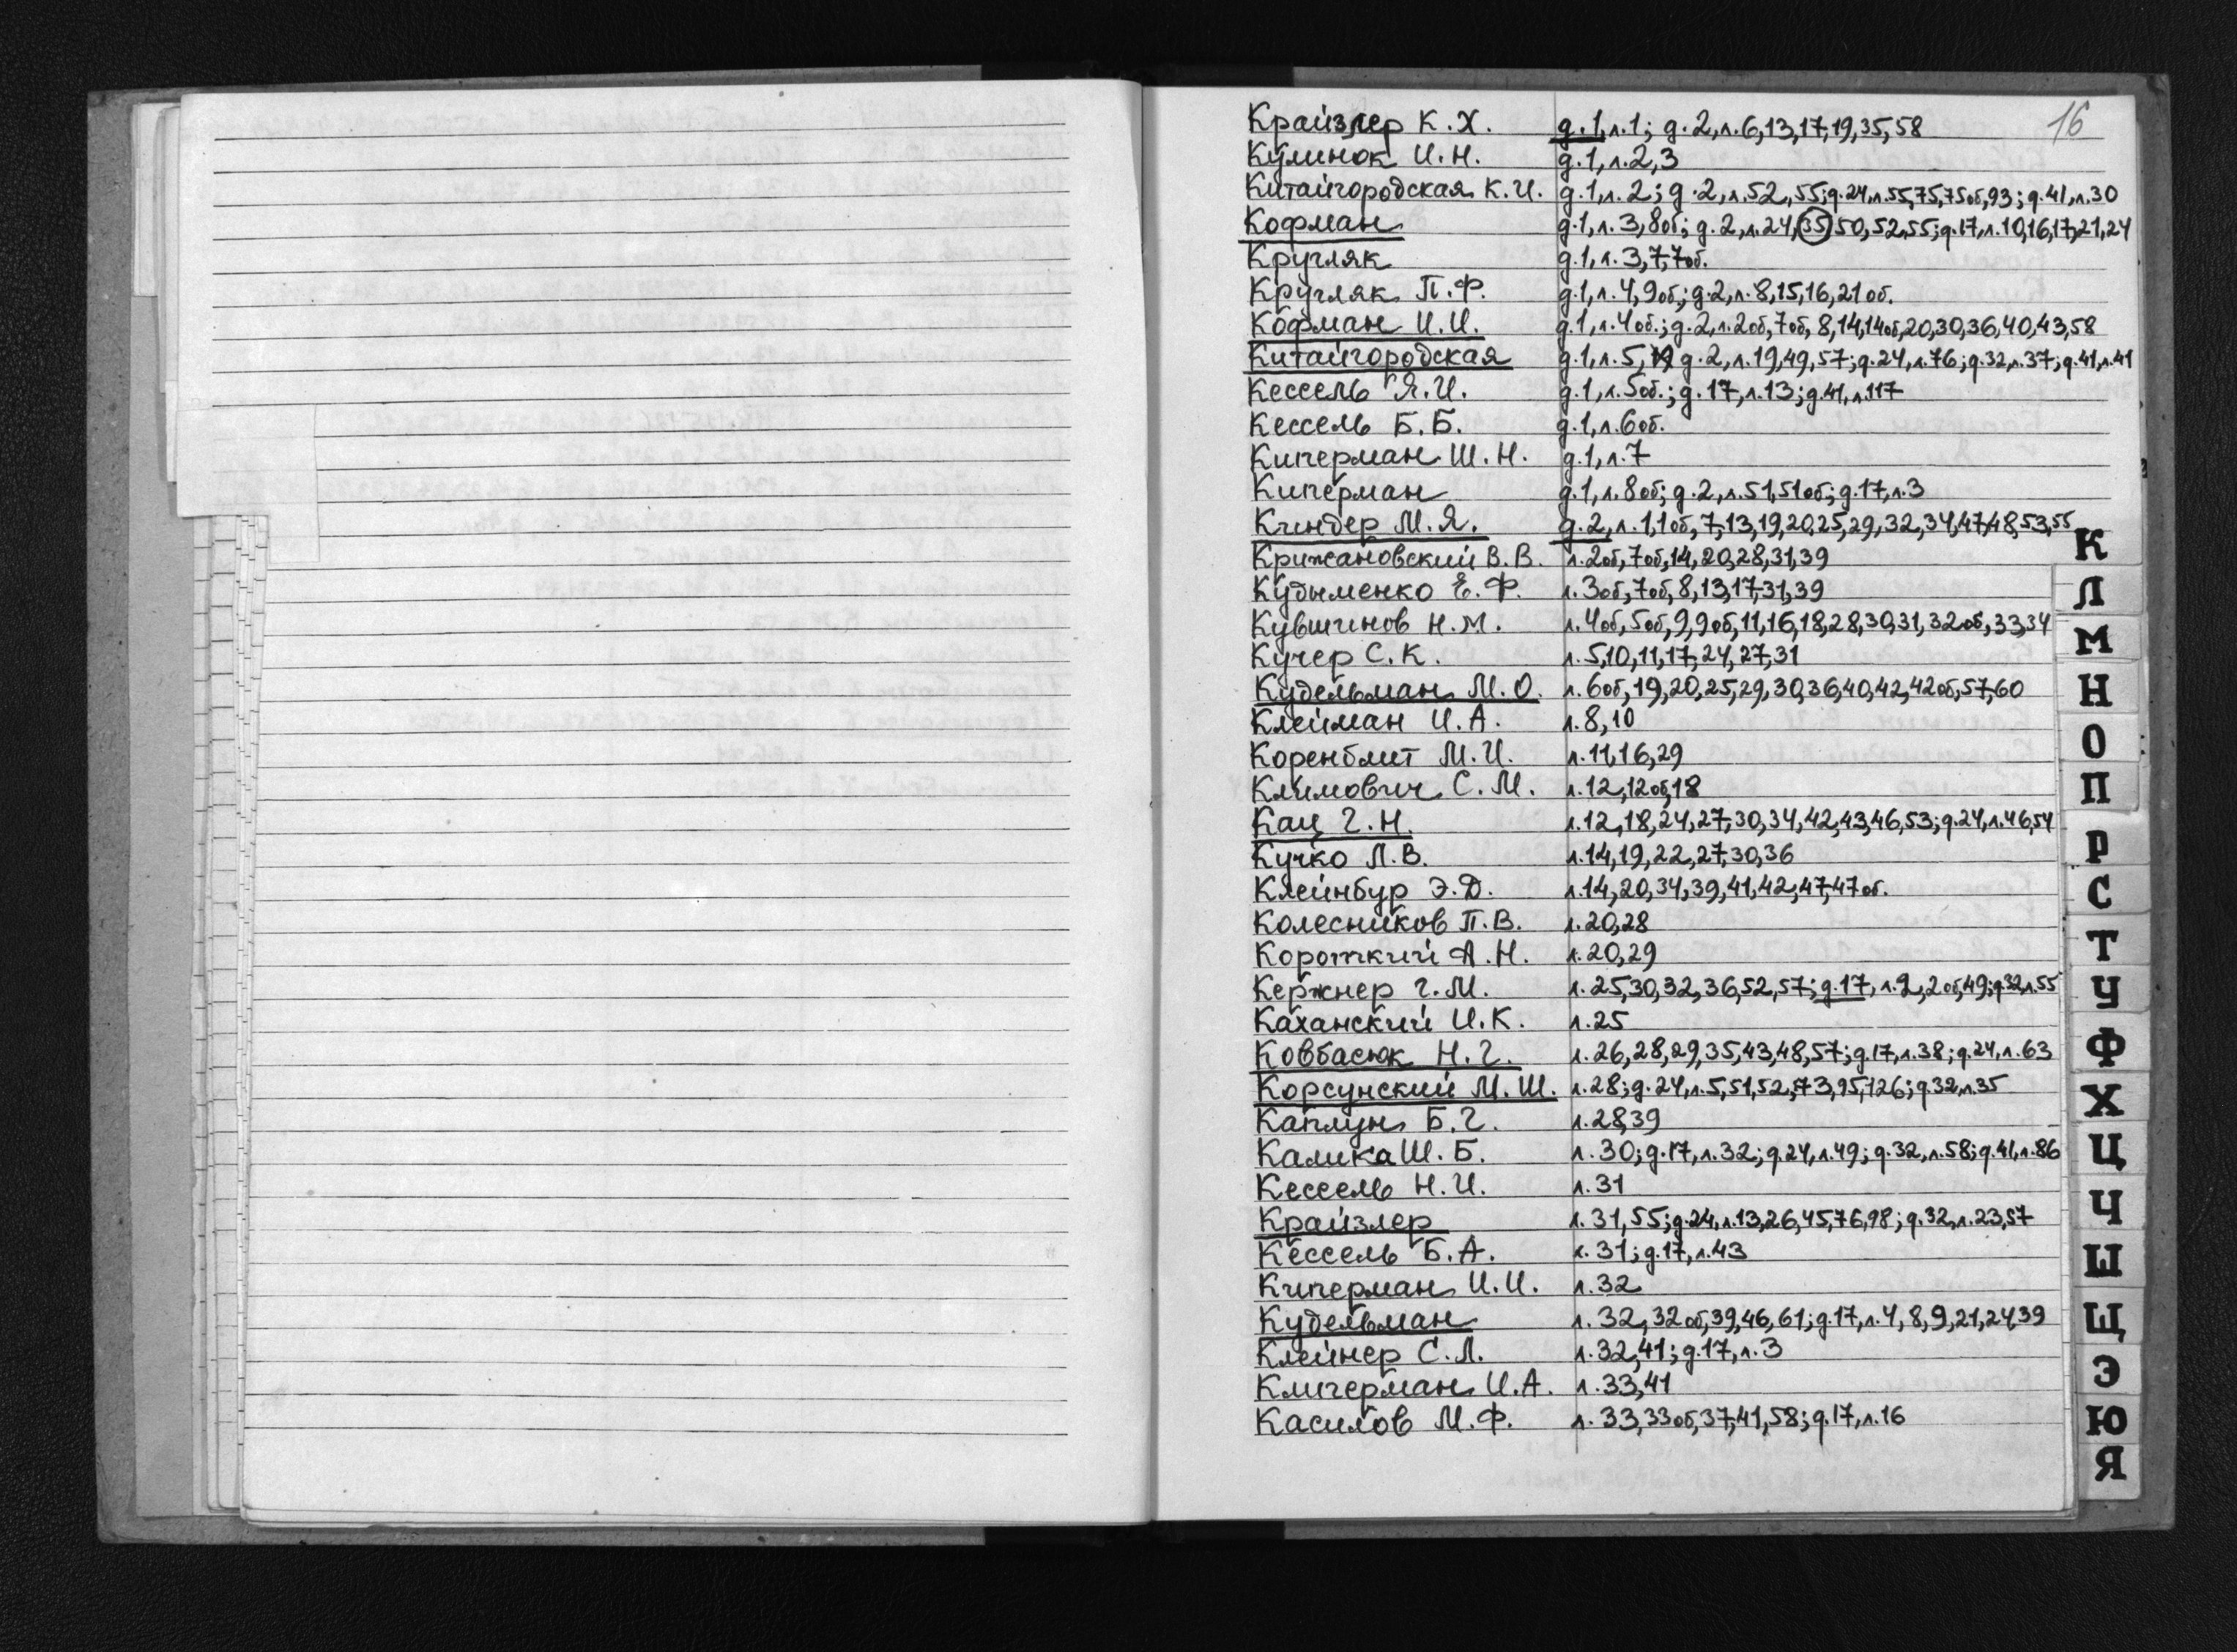 16
Крайзлер К.Х. д.1, л.1; д.2, л.6,13,17,19,35,58
Кулинок И.Н. д.1, л.2,3
Китайгородская К.И. д.1, л.2; д.2, л.52,55; д.24, л.55,75,75об,93; д.41, л.30
Кофман д.1, л.3,8об; д.2, л.24,35,50,52,55; д.17, л.10,16,17,21,24
Кругляк д.1, л.3,7,7об.
Кругляк П.Ф. д.1, л.4,9об; д.2, л.8,15,16,21об.
Кофман И.И. д.1, л.4об.; д.2, л.2об,7об,8,14,14об,20,30,36,40,43,58
Китайгородская д.1, л.5, д.2, л.19,49,57; д.24, л.76; д.32, л.37; д.41, л.41
Кессель Я.И. д.1, л.5об.; д.17, л.13; д.41, л.117
Кессель Б.Б. д.1, л.6об.
Киперман Ш.Н. д.1, л.7
Киперман д.1, л.8об; д.2, л.51,51об; д.17, л.3
Киндер М.Я. д.2, л.1,1об,7,13,19,20,25,29,32,34,47,48,53,55
Крижановский В.В. л.2об,7об,14,20,28,31,39
Кудыменко Е.Ф. л.3об,7об,8,13,17,31,39
Кувшинов Н.М. л.4об,5об,9,9об,11,16,18,28,30,31,32об,33,34
Кучер С.К. л.5,10,11,17,24,27,31
Кудельман М.О. л.6об,19,20,25,29,30,36,40,42,42об,57,60
Клейман И.А. л.8,10
Коренблит М.И. л.11,16,29
Климович С.М. л.12,12об,18
Кац Г.Н. л.12,18,24,27,30,34,42,43,46,53; д.24, л.46,54
Кучко Л.В. л.14,19,22,27,30,36
Клейнбур Э.Д. л.14,20,34,39,41,42,47,47об.
Колесников П.В. л.20,28
Короткий А.Н. л.20,29
Кержнер Г.М. л.25,30,32,36,52,57; д.17, л.2,2об,49; д.32, л.55
Каханский И.К. л.25
Ковбасюк Н.Г. л.26,28,29,35,43,48,57; д.17, л.38; д.24, л.63
Корсунский М.Ш. л.28; д.24, л.5,51,52,73,95,126; д.32, л.35
Каплун Б.Г. л.28,39
Калика Ш.Б. л.30; д.17, л.32; д.24, л.49; д.32, л.58; д.41, л.86
Кессель Н.И. л.31
Крайзлер л.31,55; д.24, л.13,26,45,76,98; д.32, л.23,57
Кессель Б.А. л.31; д.17, л.43
Киперман И.И. л.32
Кудельман л.32,32об,39,46,61; д.17, л.4,8,9,21,24,39
Клейнер С.Л. л.32,41; д.17, л.3
Клигерман И.А. л.33,41
Касилов М.Ф. л.33,33об,37,41,58; д.17, л.16
К
Л
М
Н
О
П
Р
С
Т
У
Ф
Х
Ц
Ч
Ш
Щ
Э
Ю
Я